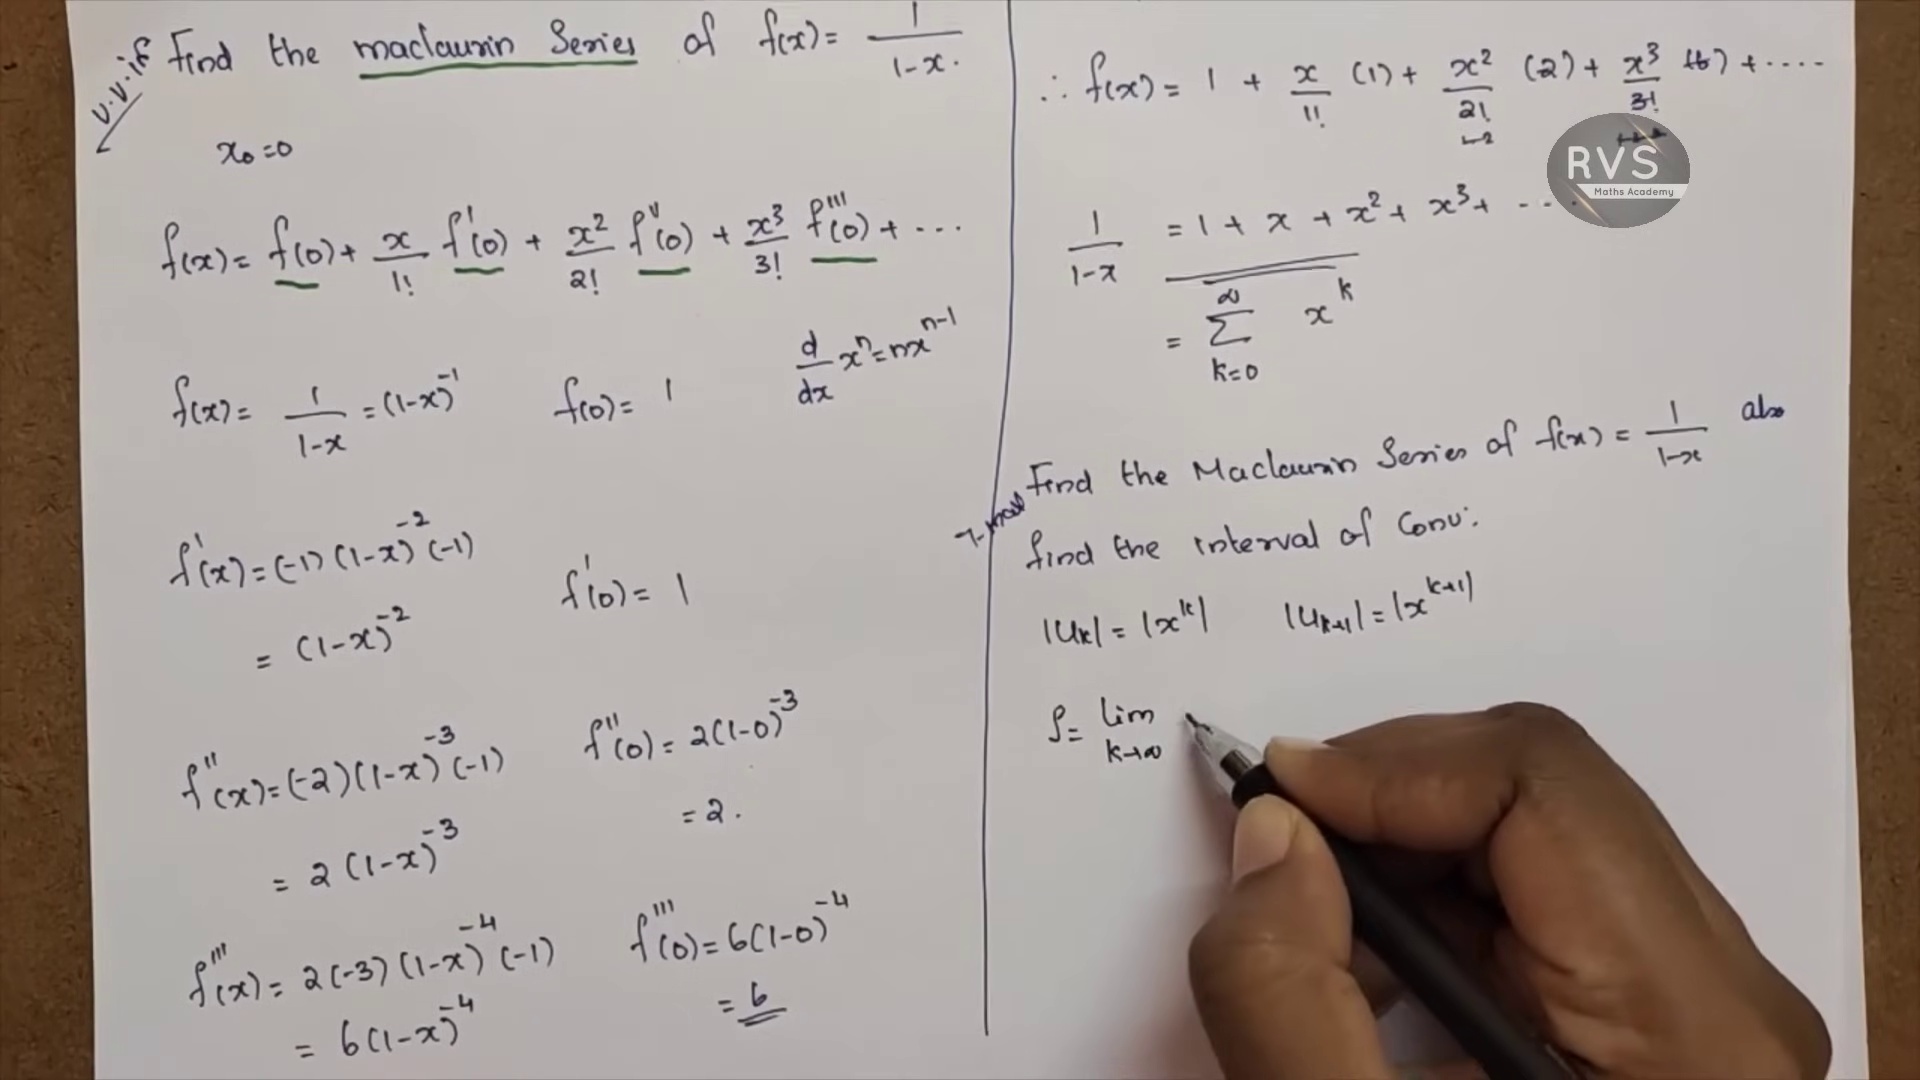 v.v.if Find the maclaurin Series of f(x) = 1/(1-x).
x₀ = 0
f(x) = f(0) + x/1! f'(0) + x²/2! f''(0) + x³/3! f'''(0) + ...
f(x) = 1/(1-x) = (1-x)⁻¹ f(0) = 1 d/dx xⁿ = nxⁿ⁻¹
f'(x) = (-1)(1-x)⁻²(-1) f'(0) = 1
= (1-x)⁻²
f''(x) = (-2)(1-x)⁻³(-1) f''(0) = 2(1-0)⁻³
= 2(1-x)⁻³ = 2.
f'''(x) = 2(-3)(1-x)⁻⁴(-1) f'''(0) = 6(1-0)⁻⁴
= 6(1-x)⁻⁴ = 6
∴ f(x) = 1 + x/1! (1) + x²/2! (2) + x³/3! (6) + ....
1/(1-x) = 1 + x + x² + x³ + ....
= ∑_{k=0}^{∞} x^k
Find the Maclaurin Series of f(x) = 1/(1-x) also
find the interval of Conv:
|Uₖ| = |x^k| |Uₖ₊₁| = |x^{k+1}|
ρ = lim k→∞
RVS
Maths Academy